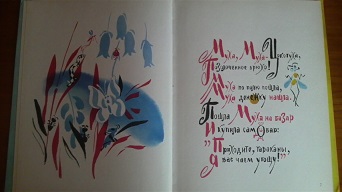 Муха, Муха-Цокотуха,
Позолоченное брюхо!
Муха по полю пошла,
Муха денежку нашла.
Пошла Муха на базар
И купила самовар:
"Приходите, тараканы,
Я вас чаем угощу!"